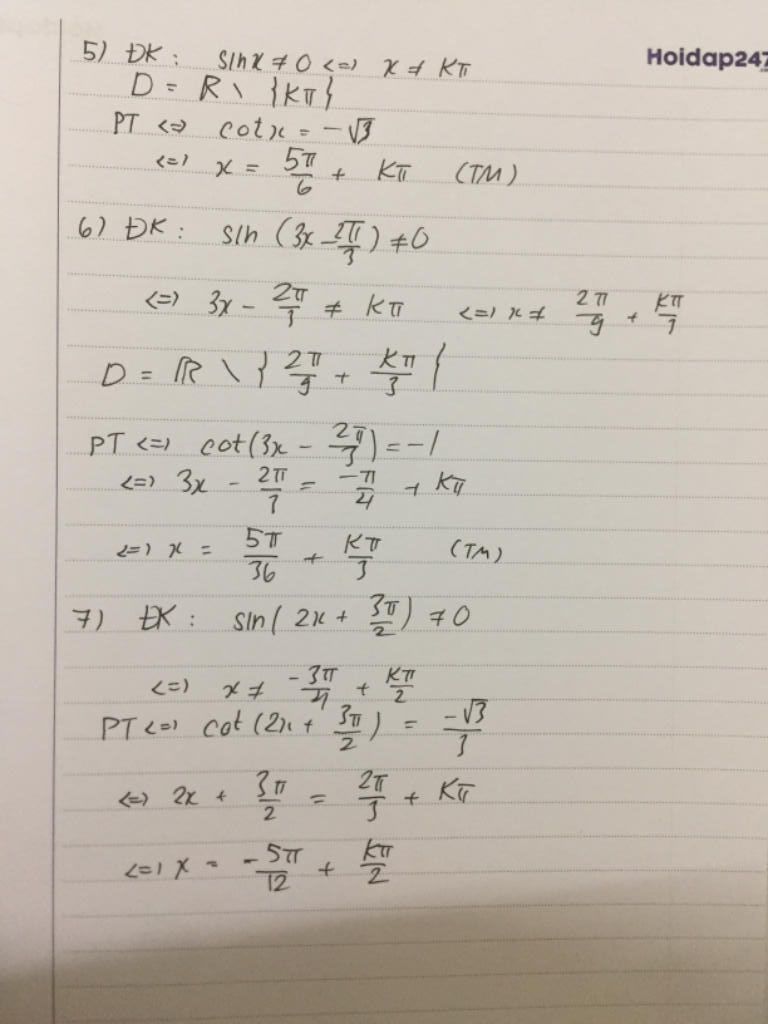 Hoidap247
5) ĐK: sinx ≠ 0 <=> x ≠ Kπ
D = R \ {Kπ}
PT <=> cotx = -√3
<=> x = 5π/6 + Kπ (TM)
6) ĐK: sin (3x - 2π/3) ≠ 0
<=> 3x - 2π/3 ≠ Kπ <=> x ≠ 2π/9 + Kπ/3
D = R \ { 2π/9 + Kπ/3 }
PT <=> cot(3x - 2π/3) = -1
<=> 3x - 2π/3 = -π/4 + Kπ
<=> x = 5π/36 + Kπ/3 (TM)
7) ĐK: sin( 2x + 3π/2 ) ≠ 0
<=> x ≠ -3π/4 + Kπ/2
PT <=> cot (2x + 3π/2) = -√3/3
<=> 2x + 3π/2 = 2π/3 + Kπ
<=> x = -5π/12 + Kπ/2